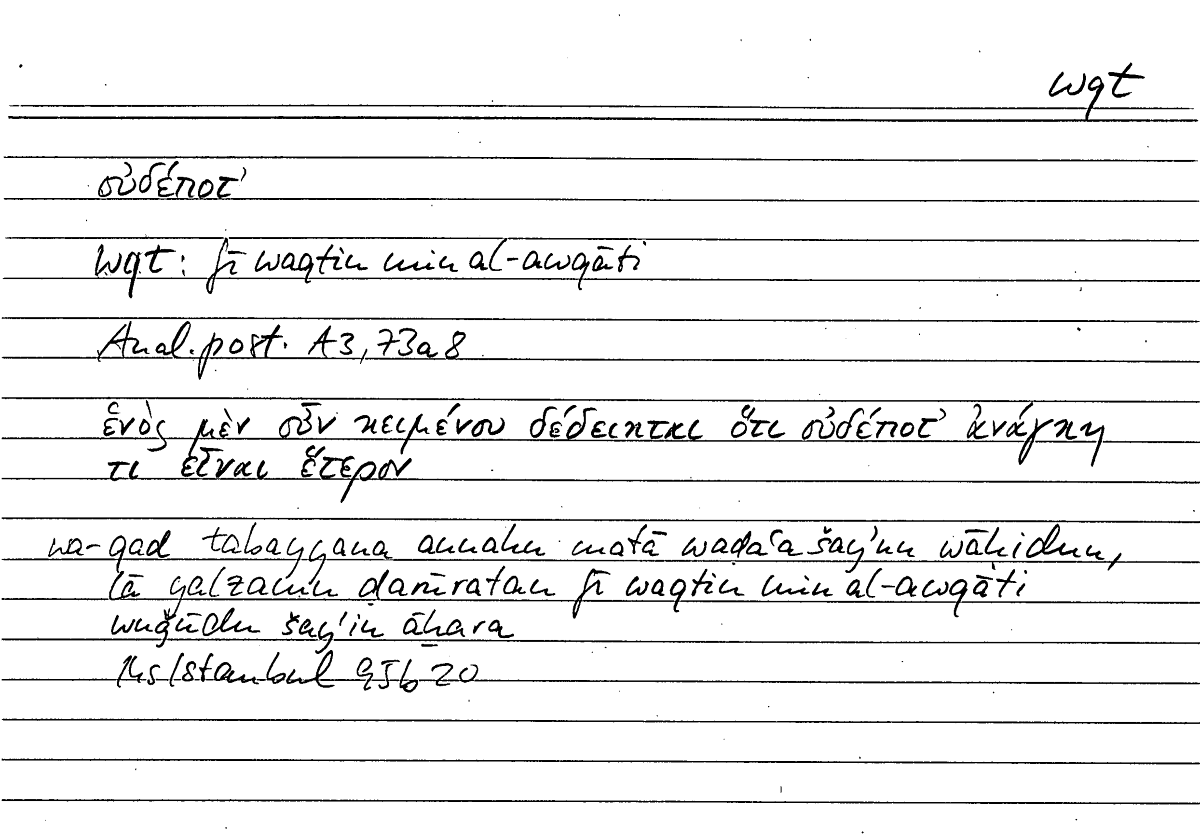 wqt
οὐδέποτ’
wqt: fī waqtin min al-awqāti
Anal. post. A3, 73a8
ἑνὸς μὲν οὖν κειμένου δέδεικται ὅτι οὐδέποτ’ ἀνάγκη
τι εἶναι ἕτερον
wa-qad tabayyana annahu matā waḍaʿa šayʾun wāḥidun,
lā yalzamu ḍarūratan fī waqtin min al-awqāti
wuǧūdu šayʾin āḫara
Ms Istanbul 95b20